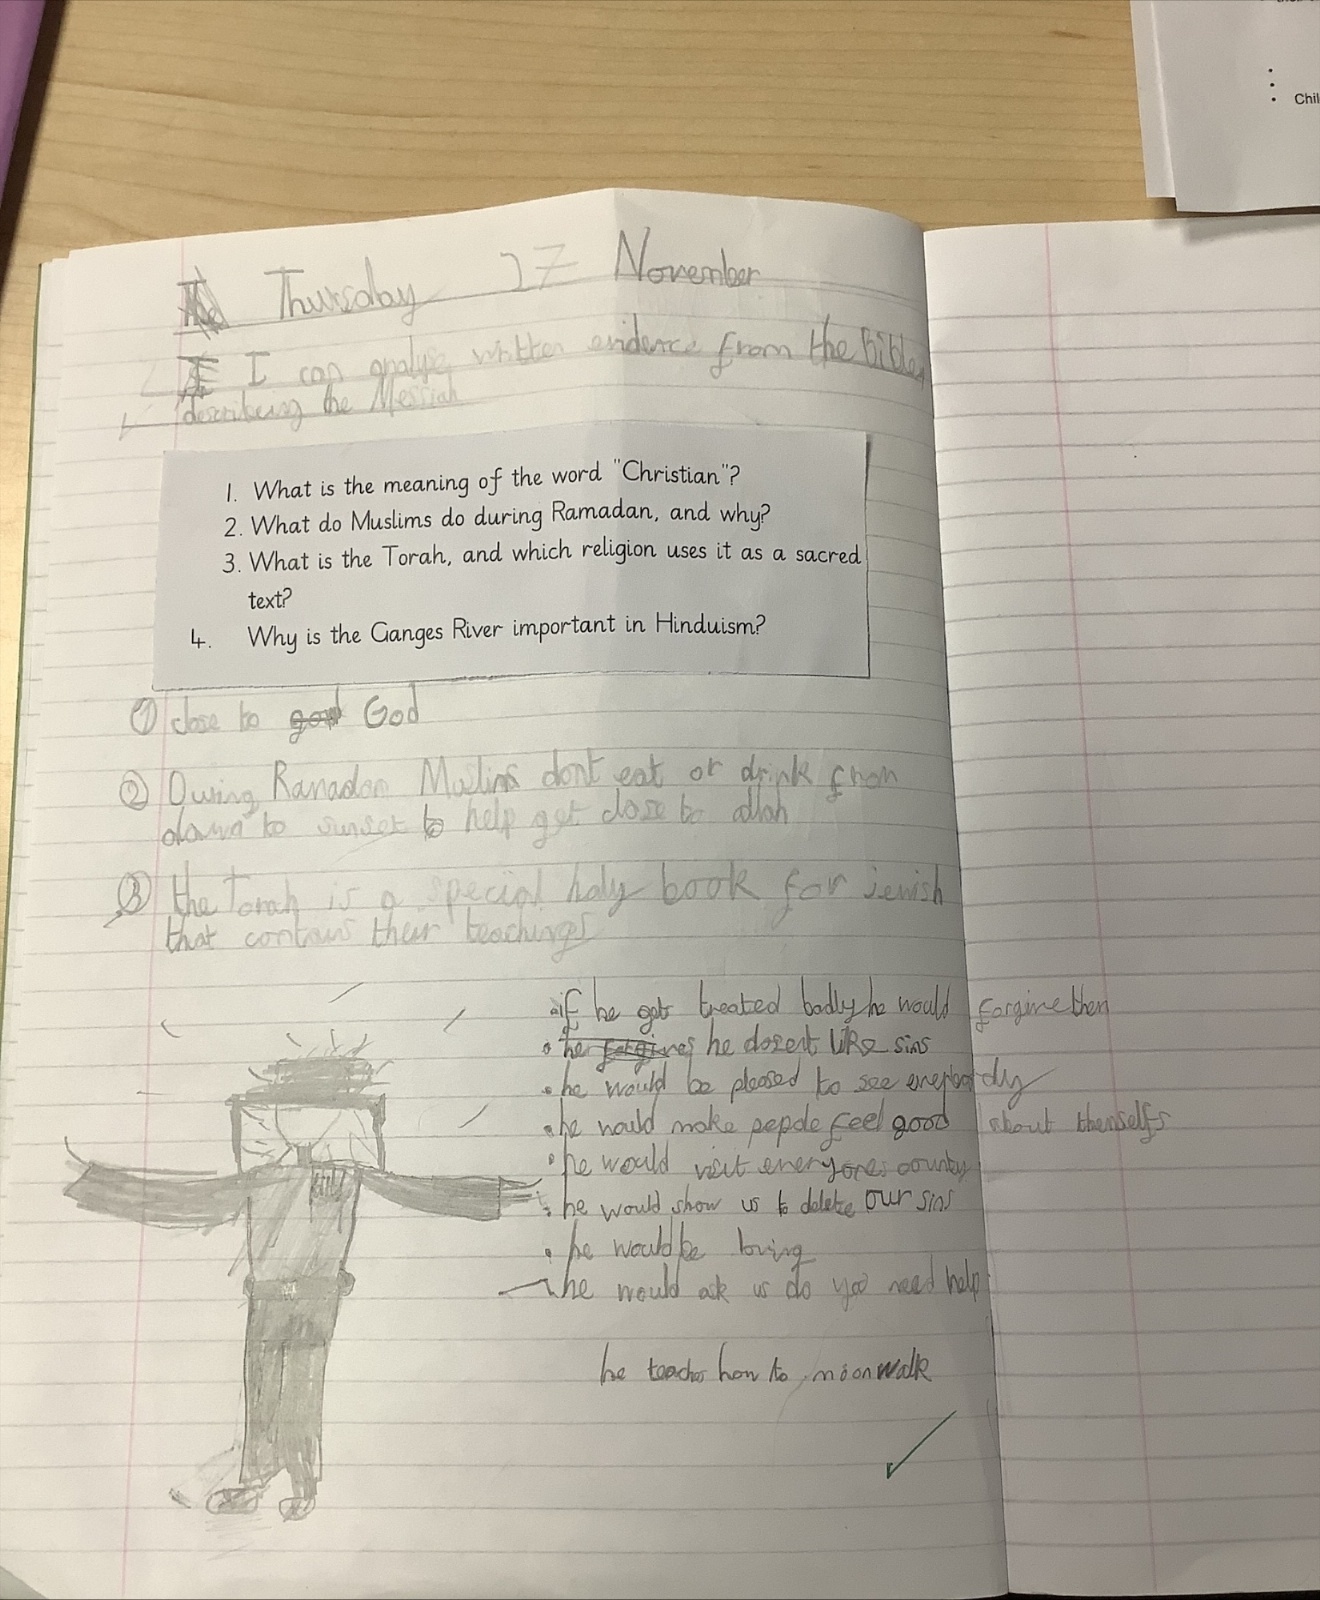 Chil
Thursday 27 November
I can analyse written evidence from the Bible,
describeing the Messiah
1. What is the meaning of the word "Christian"?
2. What do Muslims do during Ramadan, and why?
3. What is the Torah, and which religion uses it as a sacred
text?
4. Why is the Ganges River important in Hinduism?
① close to God
② During Ramadan Muslims dont eat or drink from
dawn to sunset to help get close to allah
③ the Torah is a special holy book for jewish
that contains their teachings
• if he get treated badly he would forgive them
• he he dosent like sins
• he would be pleased to see everybordy
• he would make people feel good about themselfs
• he would visit everyones county
• he would show us to delete our sins
• he would be loving
he would ask us do you need help
he teaches how to moonwalk